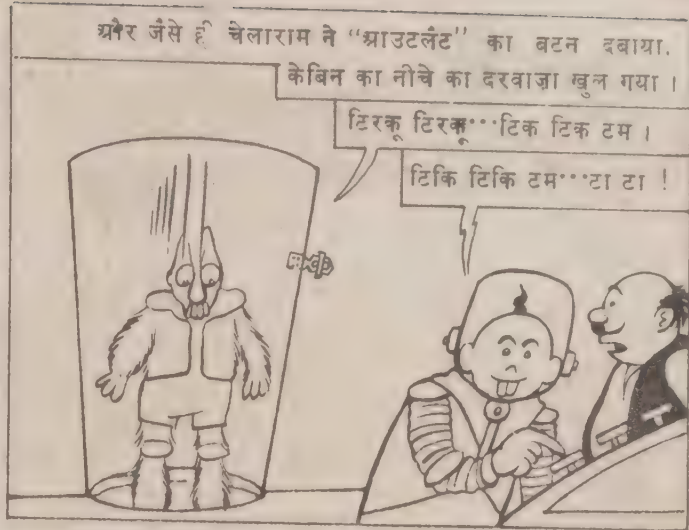 और जैसे ही चेलाराम ने “आउटलैट” का बटन दबाया.
केबिन का नीचे का दरवाज़ा खुल गया ।
टिरकू टिरकू···टिक टिक टम ।
टिकि टिकि टम···टा टा !